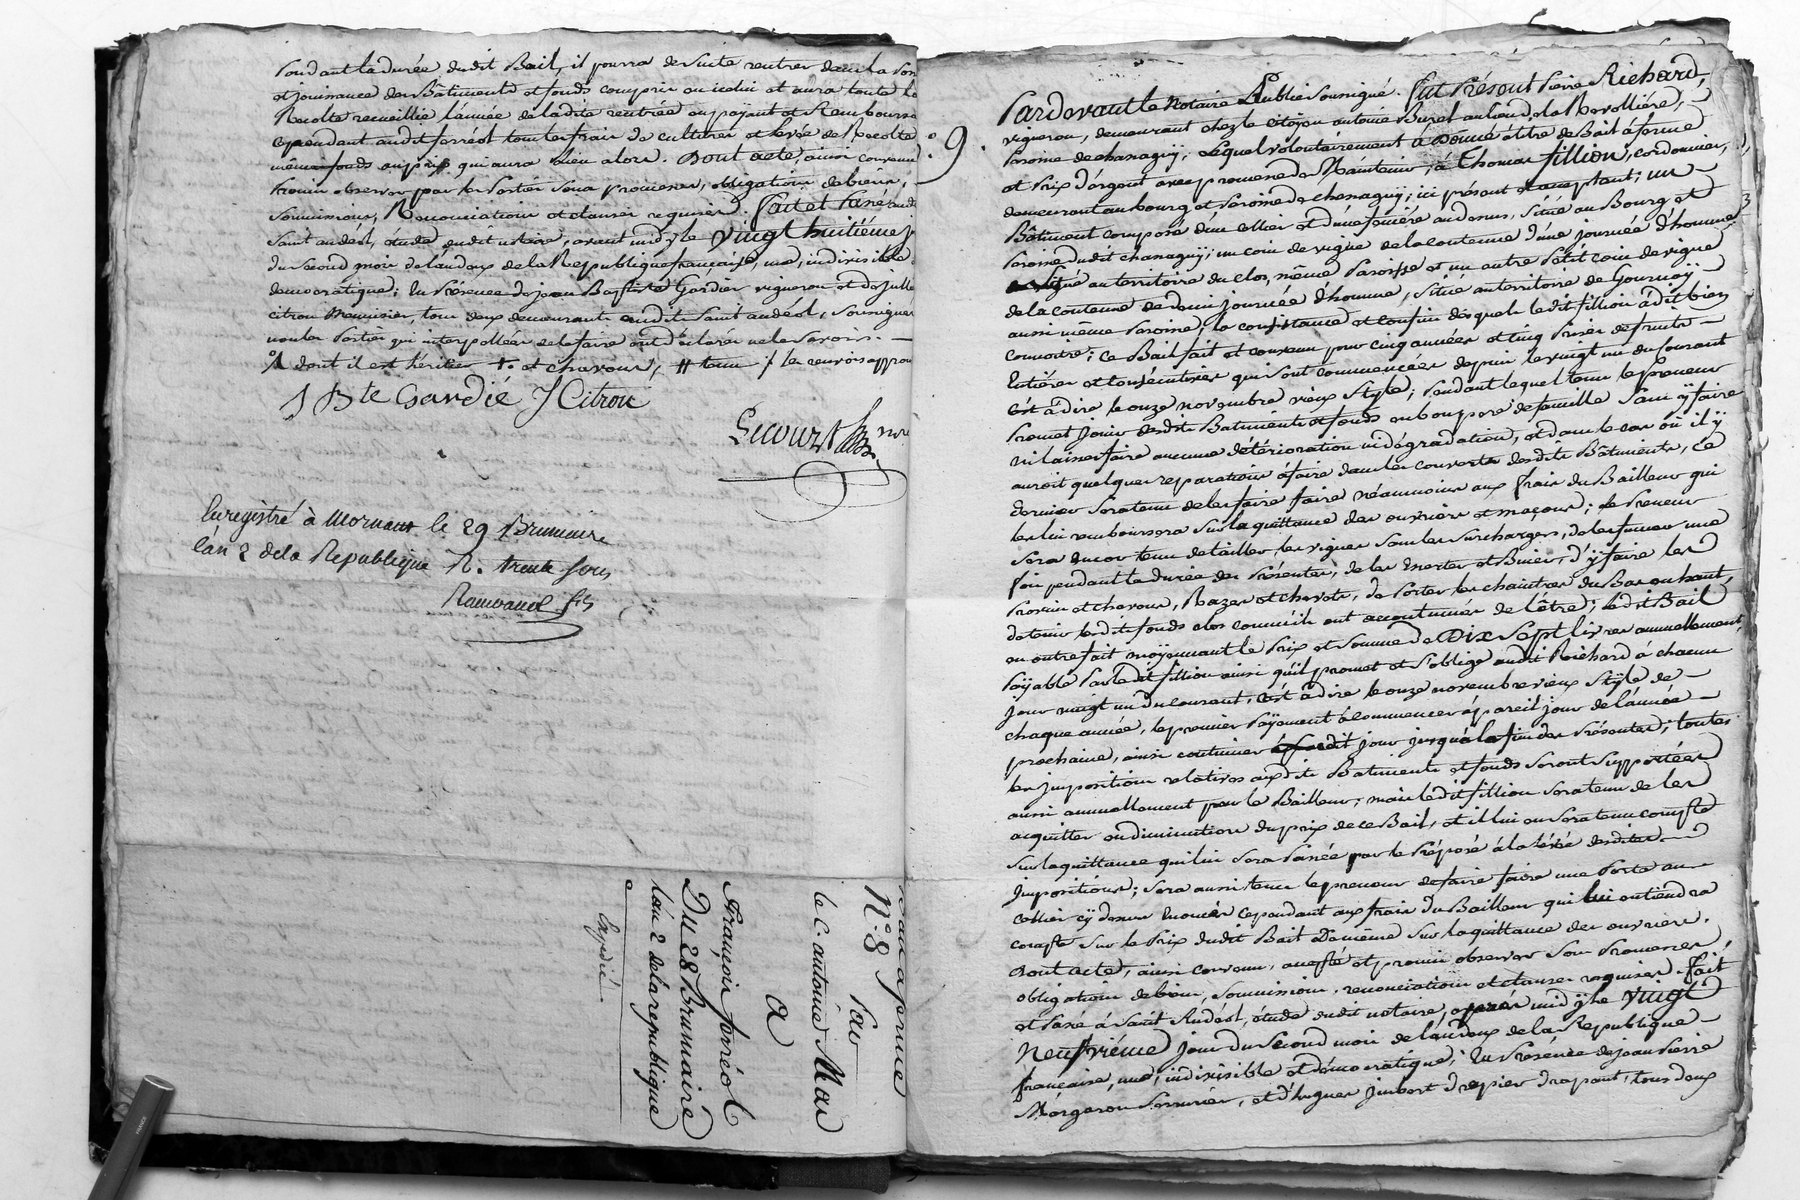 Pendant la durée dudit Bail, il pourra de suite rentrer dans la
et jouissance des Bâtiments et fonds compris en icelui et aura toute la
Recolte recueillie l'année de ladite rentrée en payant et Rembourse
cependant audit ferréol tous les frais de cultures et levée de Recolte
mêmes fonds au prix qui aura lieu alors. Dont acte, ainsi convenu
promis observer par les Parties sous promesses, obligations de biens,
soumissions, Renonciations et clauses requises. fait et Passé audit
Saint andéol, étude dudit notaire, avant midy le vingt huitième j
du second mois de l'an deux de la République française, une, indivisible
democratique; En Présence de jean Baptiste Gardier vigneron et de julle
citron Menuisier, tous deux demeurants audit Saint andéol, soussignés
non les Parties qui interpellées de le faire ont déclaré ne le savoir. —
dont il est héritier + et chavoux, # tenu / les renvois approu
J Bte Gardié J Citron
Lecourt nre
Enregistré à Mornant le 29 Brumaire
l'an 2 de la Republique R. trente sous
Bail a ferme
N.° 8
Par
le C. antoine Mas
a
François ferréol
Du 28 Brumaire
l'an 2 de la republique
Expedié
9.
Pardevant le Notaire Public soussigné. fut Présent Pierre Richard,
vigneron, demeurant chez le citoyen antoine Buzet au lieu de la Ravollière,
Paroisse de chanagny; Lequel volontairement à Donné à titre de Bail à ferme
et Prix d'argent avec promesse de Maintenir, à Thomas fillion, cordonnier,
demeurant au bourg et Paroisse de chanagny; ici présent et acceptant; un
Bâtiment composé d'un cellier et d'une fenière au dessus, situé au Bourg et
Paroisse dudit chanagny; un coin de vigne de la contenue d'une journée d'homme
situé au territoire du clos, même Paroisse et un autre Petit coin de vigne
de la contenue de demi journée d'homme, situé au territoire de Gournay
aussi même Paroisse; la consistance et confins desquels ledit fillion à dit bien
connoitre; ce Bail fait et convenu pour cinq années et cinq Prises de fruits
Entières et consécutives qui sont commencées depuis le vingt un du courant
c'est à dire le onze novembre vieux style; Pendant lequel tems le preneur
Promet Jouir desdits Batiments et fonds en bon pere de famille sans y faire
ni laisser faire aucune détérioration ni dégradation, et dans le cas où il y
auroit quelques reparations à faire dans les couverts desdits Bâtiments, ce
dernier sera tenu de les faire faire néanmoins aux frais du Bailleur qui
les lui remboursera sur la quittance des ouvriers et maçons; le Preneur
sera encor tenu de tailler les vignes sans les surcharger, de les fumer une
fois pendant la durée des Présentes, de les Enerter et Biner, d'y faire les
Provins et chavoux, Razes et chevets, de Porter les chaintres du Bas en haut,
de tenir lesdits fonds clos comme ils ont accoutumés de l'être; ledit Bail
en outre fait moyennant le Prix et somme de Dix Sept livres annuellement,
Payable Par ledit fillion ainsi qu'il promet et s'oblige audit Richard à chacun
jour vingt un du courant, c'est à dire le onze novembre vieux style de
chaque année, le premier Payement à commencer à pareil jour de l'année
prochaine, ainsi continuer jour jusqu'à la fin des Présentes; toutes
les impositions relatives auxdits Batiments et fonds seront supportées
aussi annuellement par le Bailleur; mais ledit fillion sera tenu de les
acquitter en diminution du prix de ce Bail, et il lui en sera tenu compte
sur la quittance qui lui sera Passée par le Préposé à la levée desdites
Impositions; sera aussi tenu le preneur de faire faire une Porte au
cellier cy dessus enoncé cependant aux frais du Bailleur qui lui entiendra
compte sur le Prix dudit Bail de même sur la quittance des ouvriers.
Dont acte, ainsi convenu, accepté et promis observer sous Promesses
obligations de biens, soumissions, renonciations et clauses requises. fait
et Passé à Saint Andéol, étude dudit notaire, midy le vingt
Neufvième jour du second mois de l'an deux de la République
française, une, indivisible et démocratique; En Présence de jean Pierre
Margaron serrurier, et d'hugues jimbert drapier drapant, tous deux